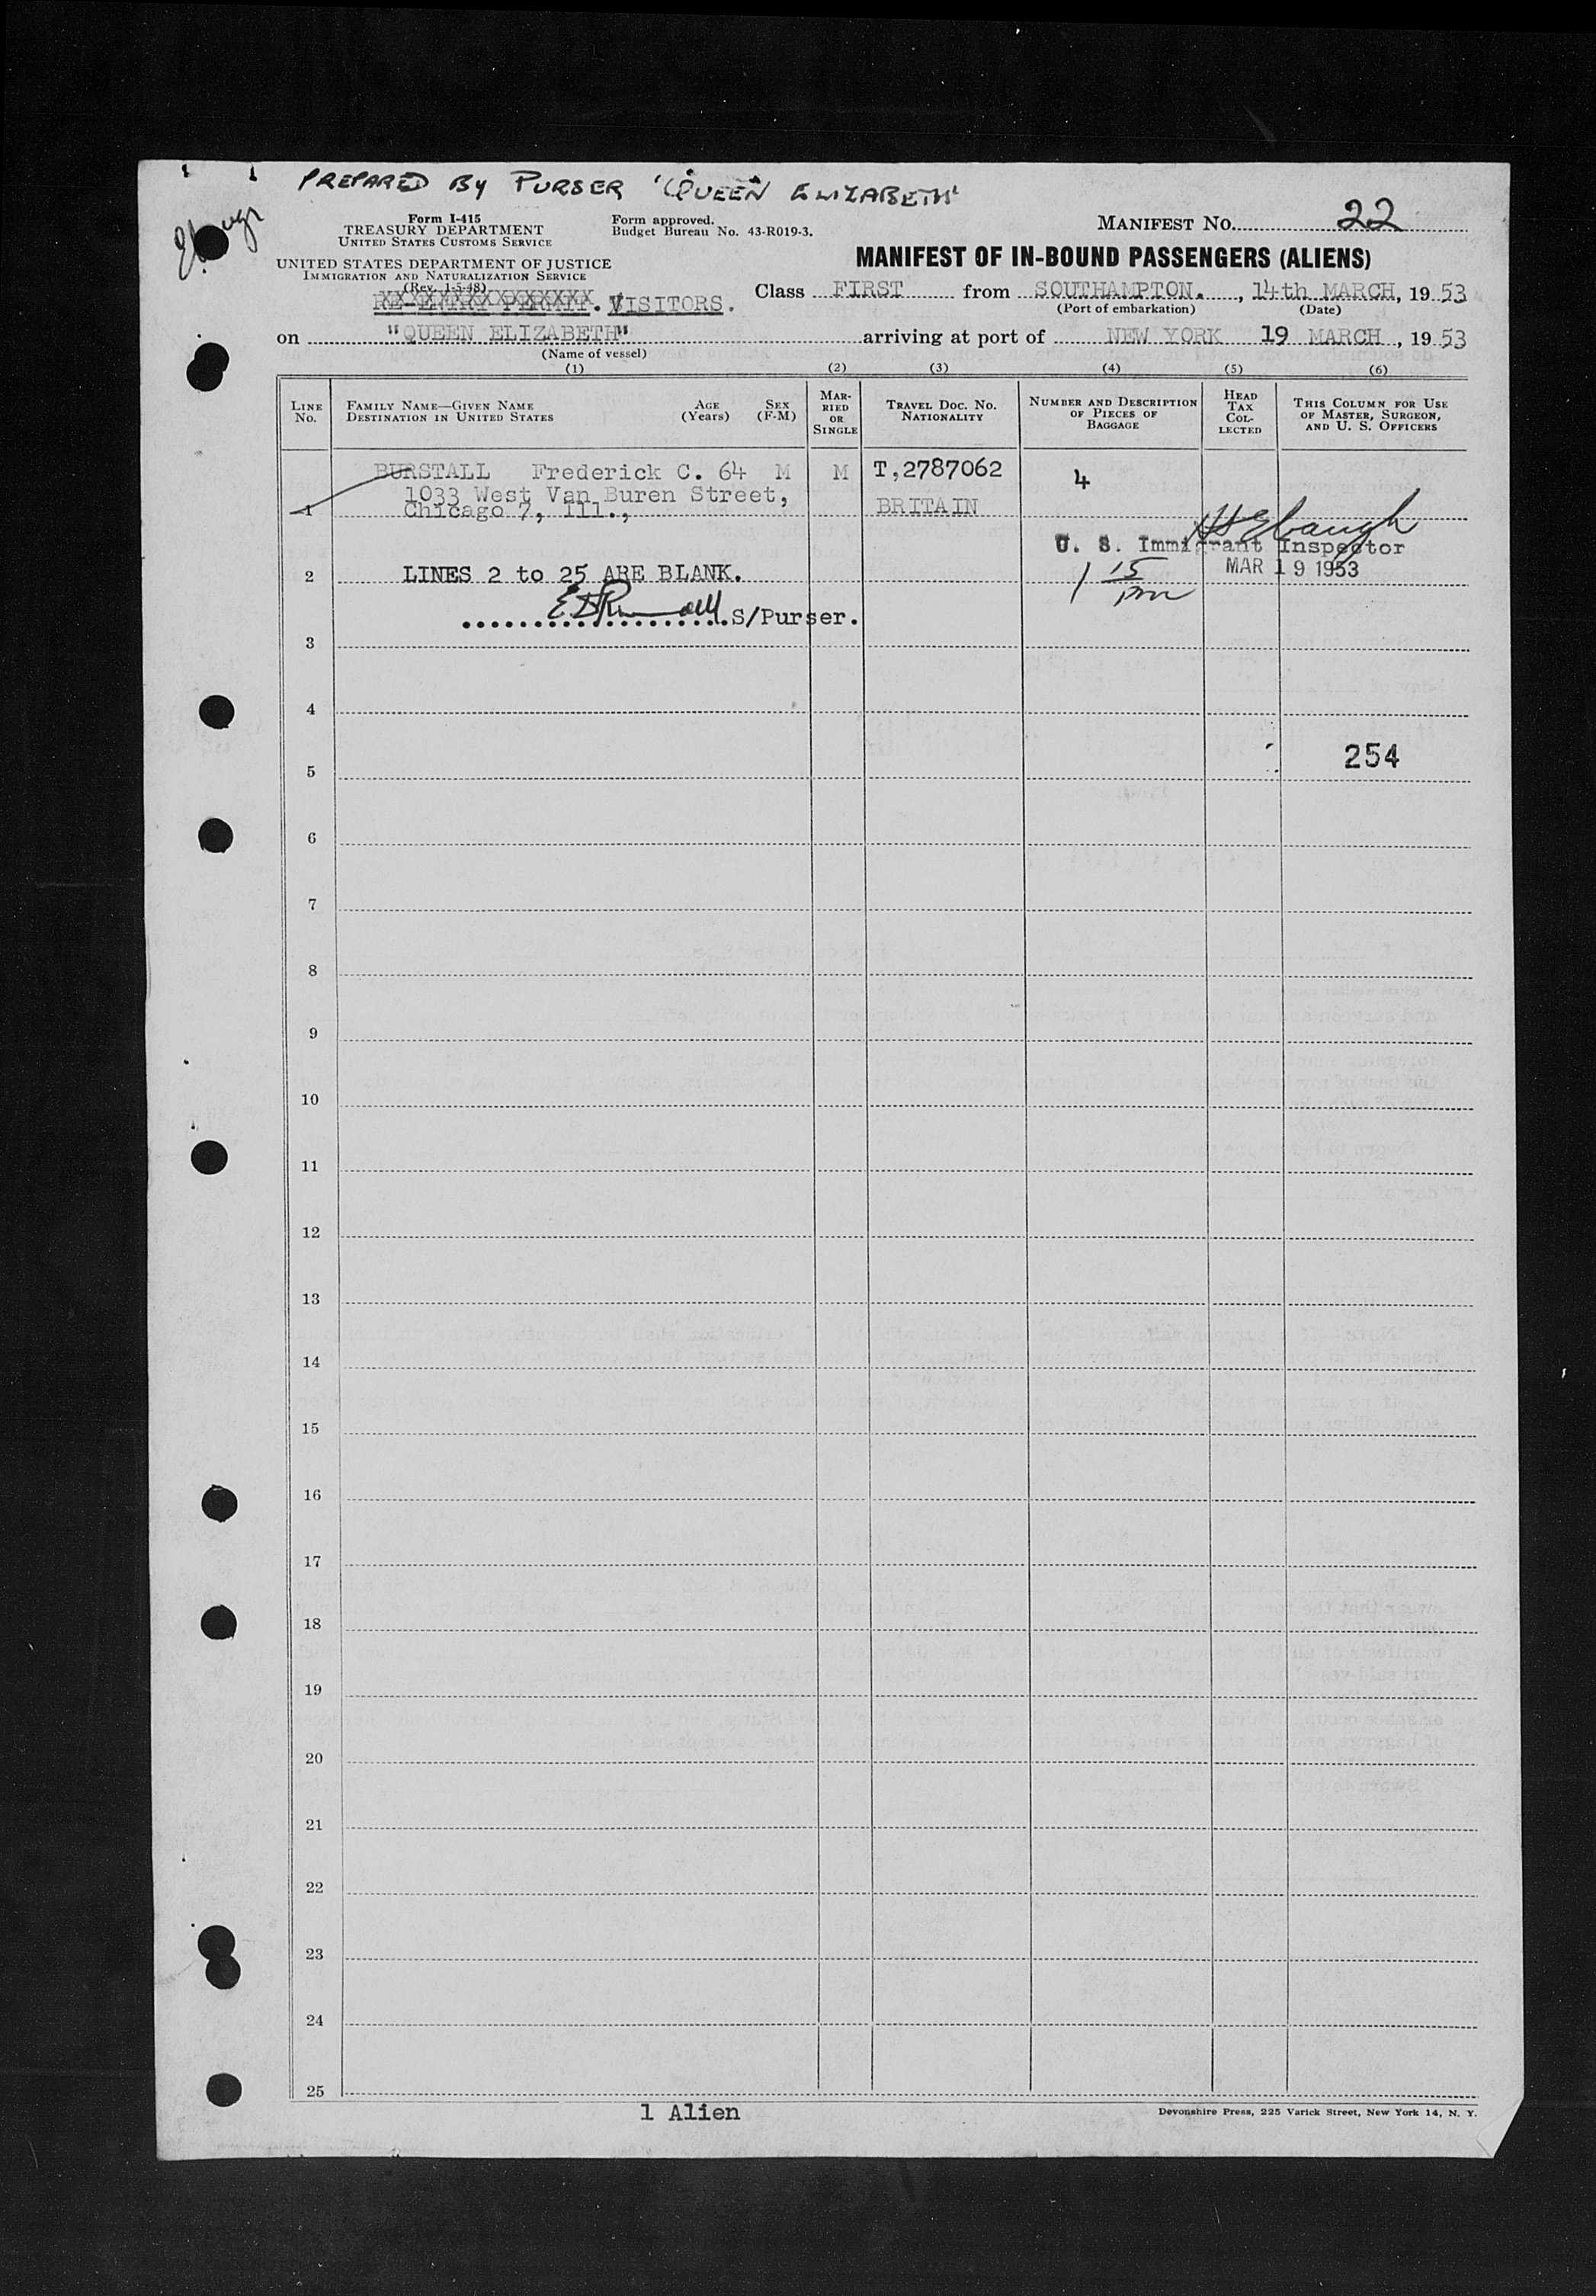 PREPARED BY PURSER "QUEEN ELIZABETH"
Form I-415
TREASURY DEPARTMENT
UNITED STATES CUSTOMS SERVICE
UNITED STATES DEPARTMENT OF JUSTICE
IMMIGRATION AND NATURALIZATION SERVICE
(Rev. 1-5-48)
Form approved.
Budget Bureau No. 43-R019-3.
MANIFEST No. 22
MANIFEST OF IN-BOUND PASSENGERS (ALIENS)
RE-ENTRY PERMIT. VISITORS.
Class FIRST from SOUTHAMPTON. , 14th MARCH, 19 53
(Port of embarkation) (Date)
on "QUEEN ELIZABETH" arriving at port of NEW YORK 19 MARCH , 19 53
(Name of vessel)
(1) (2) (3) (4) (5) (6)
LINE No.
FAMILY NAME—GIVEN NAME
DESTINATION IN UNITED STATES
AGE (Years)
SEX (F-M)
MARRIED OR SINGLE
TRAVEL DOC. NO.
NATIONALITY
NUMBER AND DESCRIPTION OF PIECES OF BAGGAGE
HEAD TAX COLLECTED
THIS COLUMN FOR USE OF MASTER, SURGEON, AND U. S. OFFICERS
BURSTALL Frederick C. 64 M M T,2787062 4
1033 West Van Buren Street,
1 Chicago 7, Ill., BRITAIN
U. S. Immigrant Inspector
MAR 19 1953
1 15 pm
2 LINES 2 to 25 ARE BLANK.
S/Purser.
3
4
254
5
6
7
8
9
10
11
12
13
14
15
16
17
18
19
20
21
22
23
24
25
1 Alien
Devonshire Press, 225 Varick Street, New York 14, N. Y.